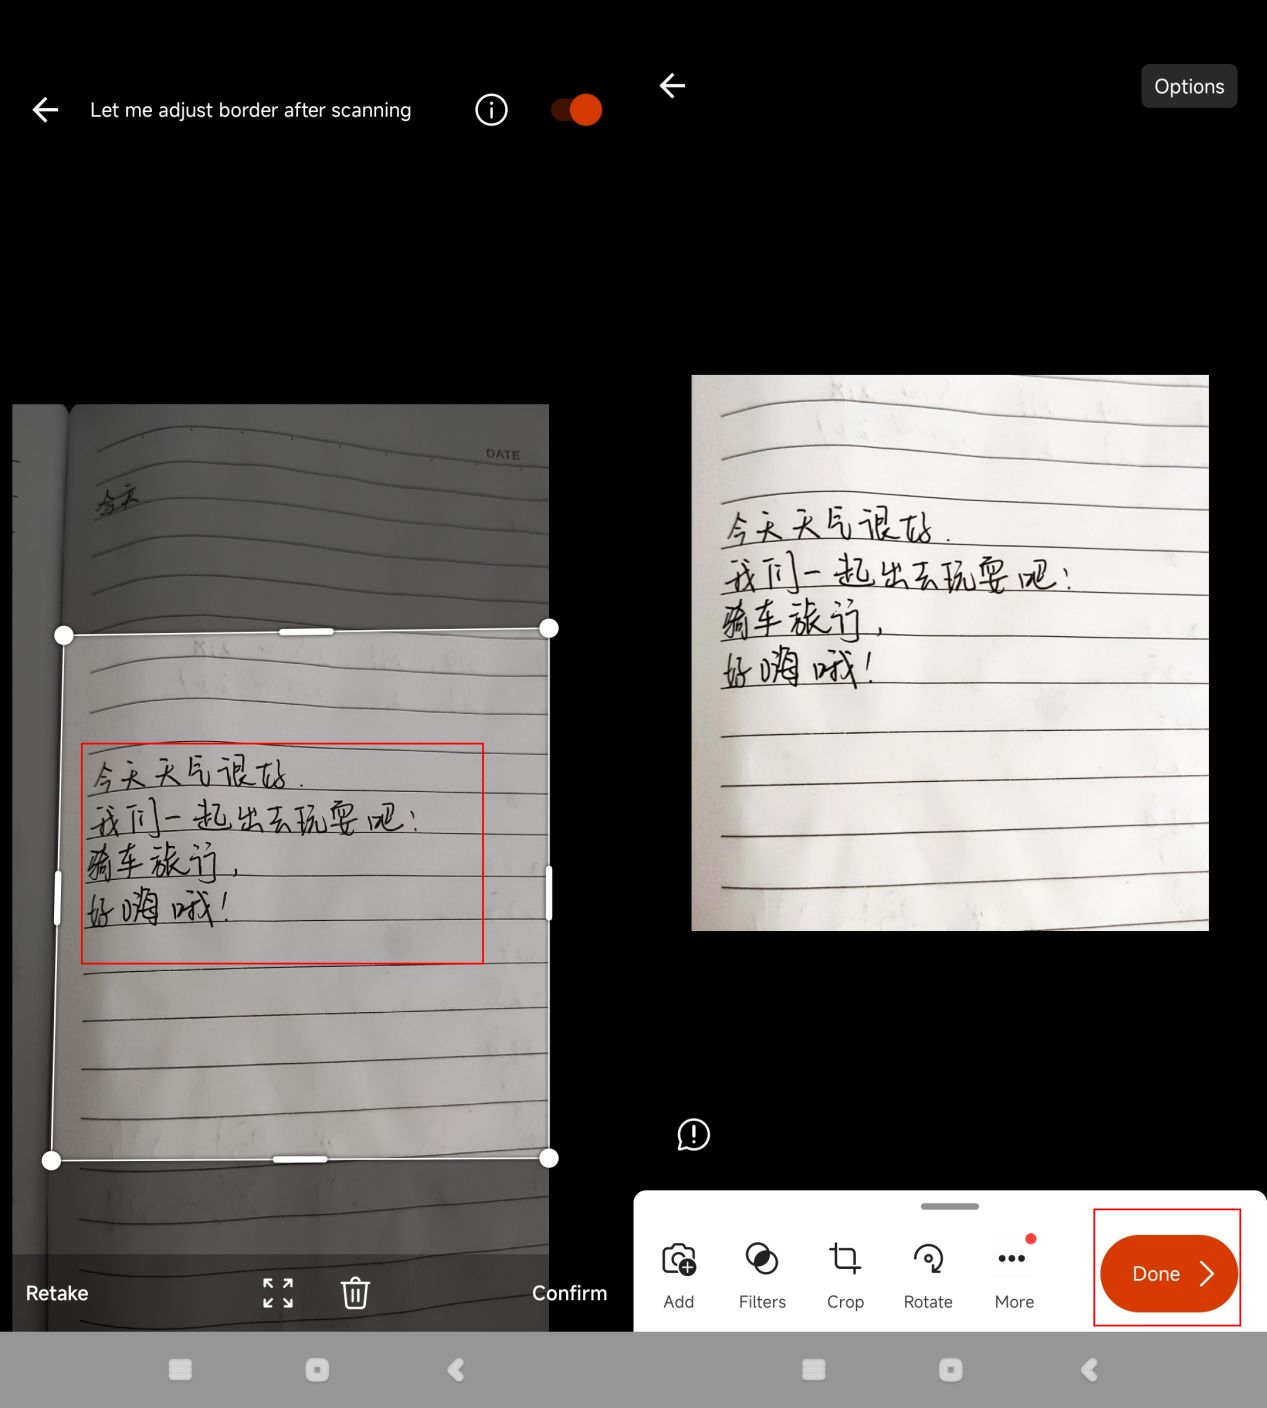 Let me adjust border after scanning
DATE
今天
今天天气很好.
我们一起出去玩耍吧!
骑车旅行,
好嗨哦!
Retake
Confirm
Options
今天天气很好.
我们一起出去玩耍吧!
骑车旅行,
好嗨哦!
Add
Filters
Crop
Rotate
More
Done